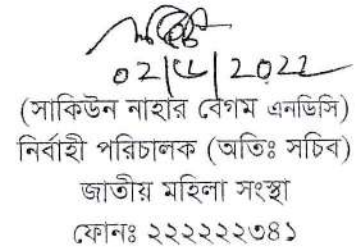 02/ /2022
(সাকিউন নাহার বেগম এনডিসি)
নির্বাহী পরিচালক (অতিঃ সচিব)
জাতীয় মহিলা সংস্থা
ফোনঃ ২২২২২২৩৪১